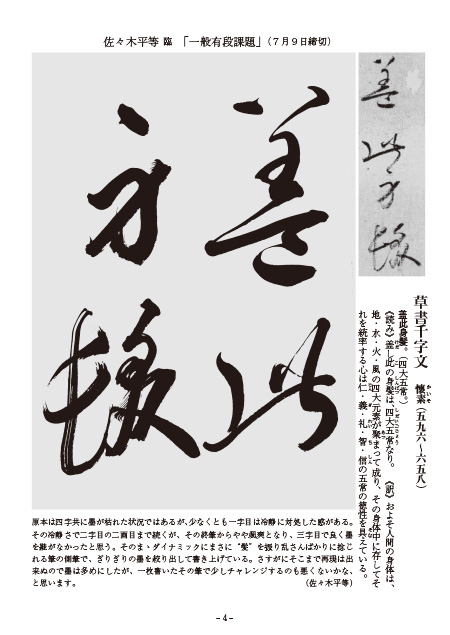 佐々木平等 臨 「一般有段課題」（７月９日締切）
蓋此
身髪
蓋此身髪
草書千字文 懐素（五九六～六五八）
かいそ
蓋此身髪。（四大五常。）
《読み》蓋し此の身髪は、四大五常なり。 《訳》およそ人間の身体は、
地・水・火・風の四大元素が聚まって成り、その身体中に存してそ
れを統率する心は仁・義・礼・智・信の五常の徳性を具えている。
原本は四字共に墨が枯れた状況ではあるが、少なくとも一字目は冷静に対処した感がある。
その冷静さで二字目の二画目まで続くが、その終筆からやや風爽となり、三字目で良く墨
を継がなかったと思う。そのまゝダイナミックにまさに“髪”を振り乱さんばかりに捻じ
れる筆の側筆で、ぎりぎりの墨を絞り出して書き上げている。さすがにそこまで再現は出
来ぬので墨は多めにしたが、一枚書いたその筆で少しチャレンジするのも悪くないかな、
と思います。 （佐々木平等）
- 4 -